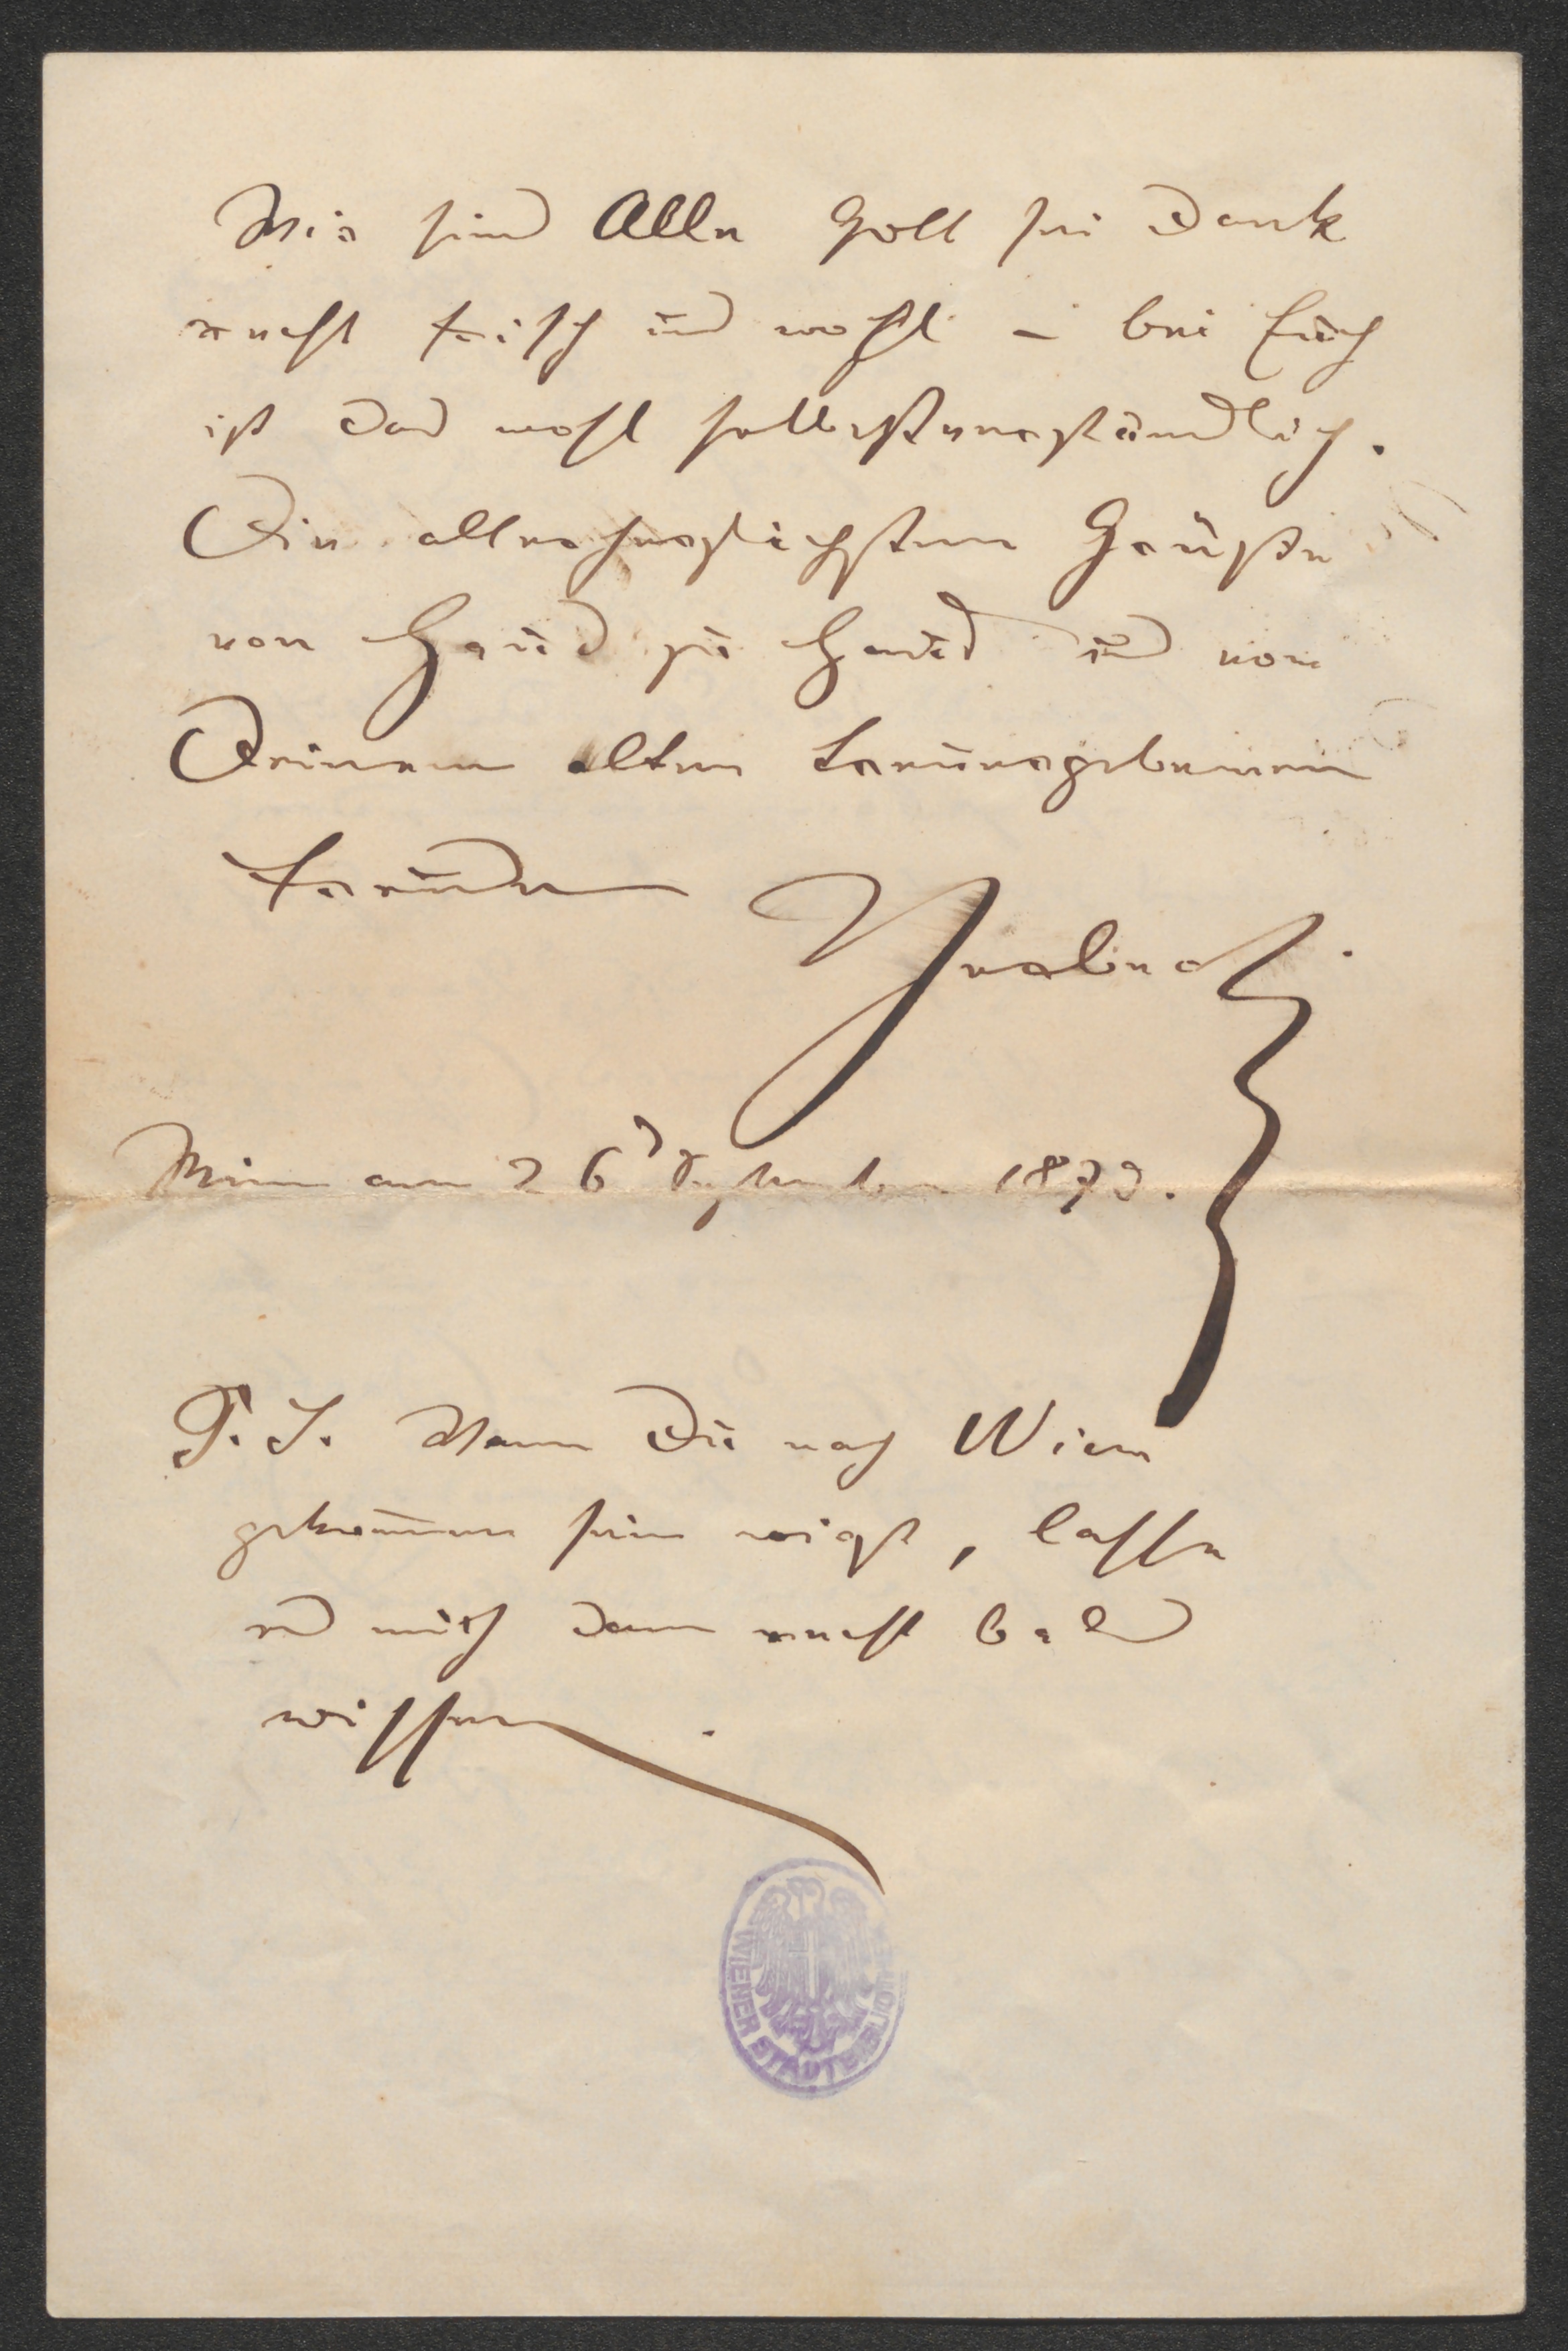 Wir sind Alle Gott sei Dank
recht frisch und wohl – bei Euch
ist das wohl selbstverständlich.
Die allerherzlichsten Grüße
von Haus zu Haus und von
Deinem alten treuergebenen
Freunde Herbeck.
Wien am 26 September 1873.
P.S. Wenn Du nach Wien
gekommen sein wirst, lasse
es mich dann recht bald
wissen.
WIENER STADTBIBLIOTHEK